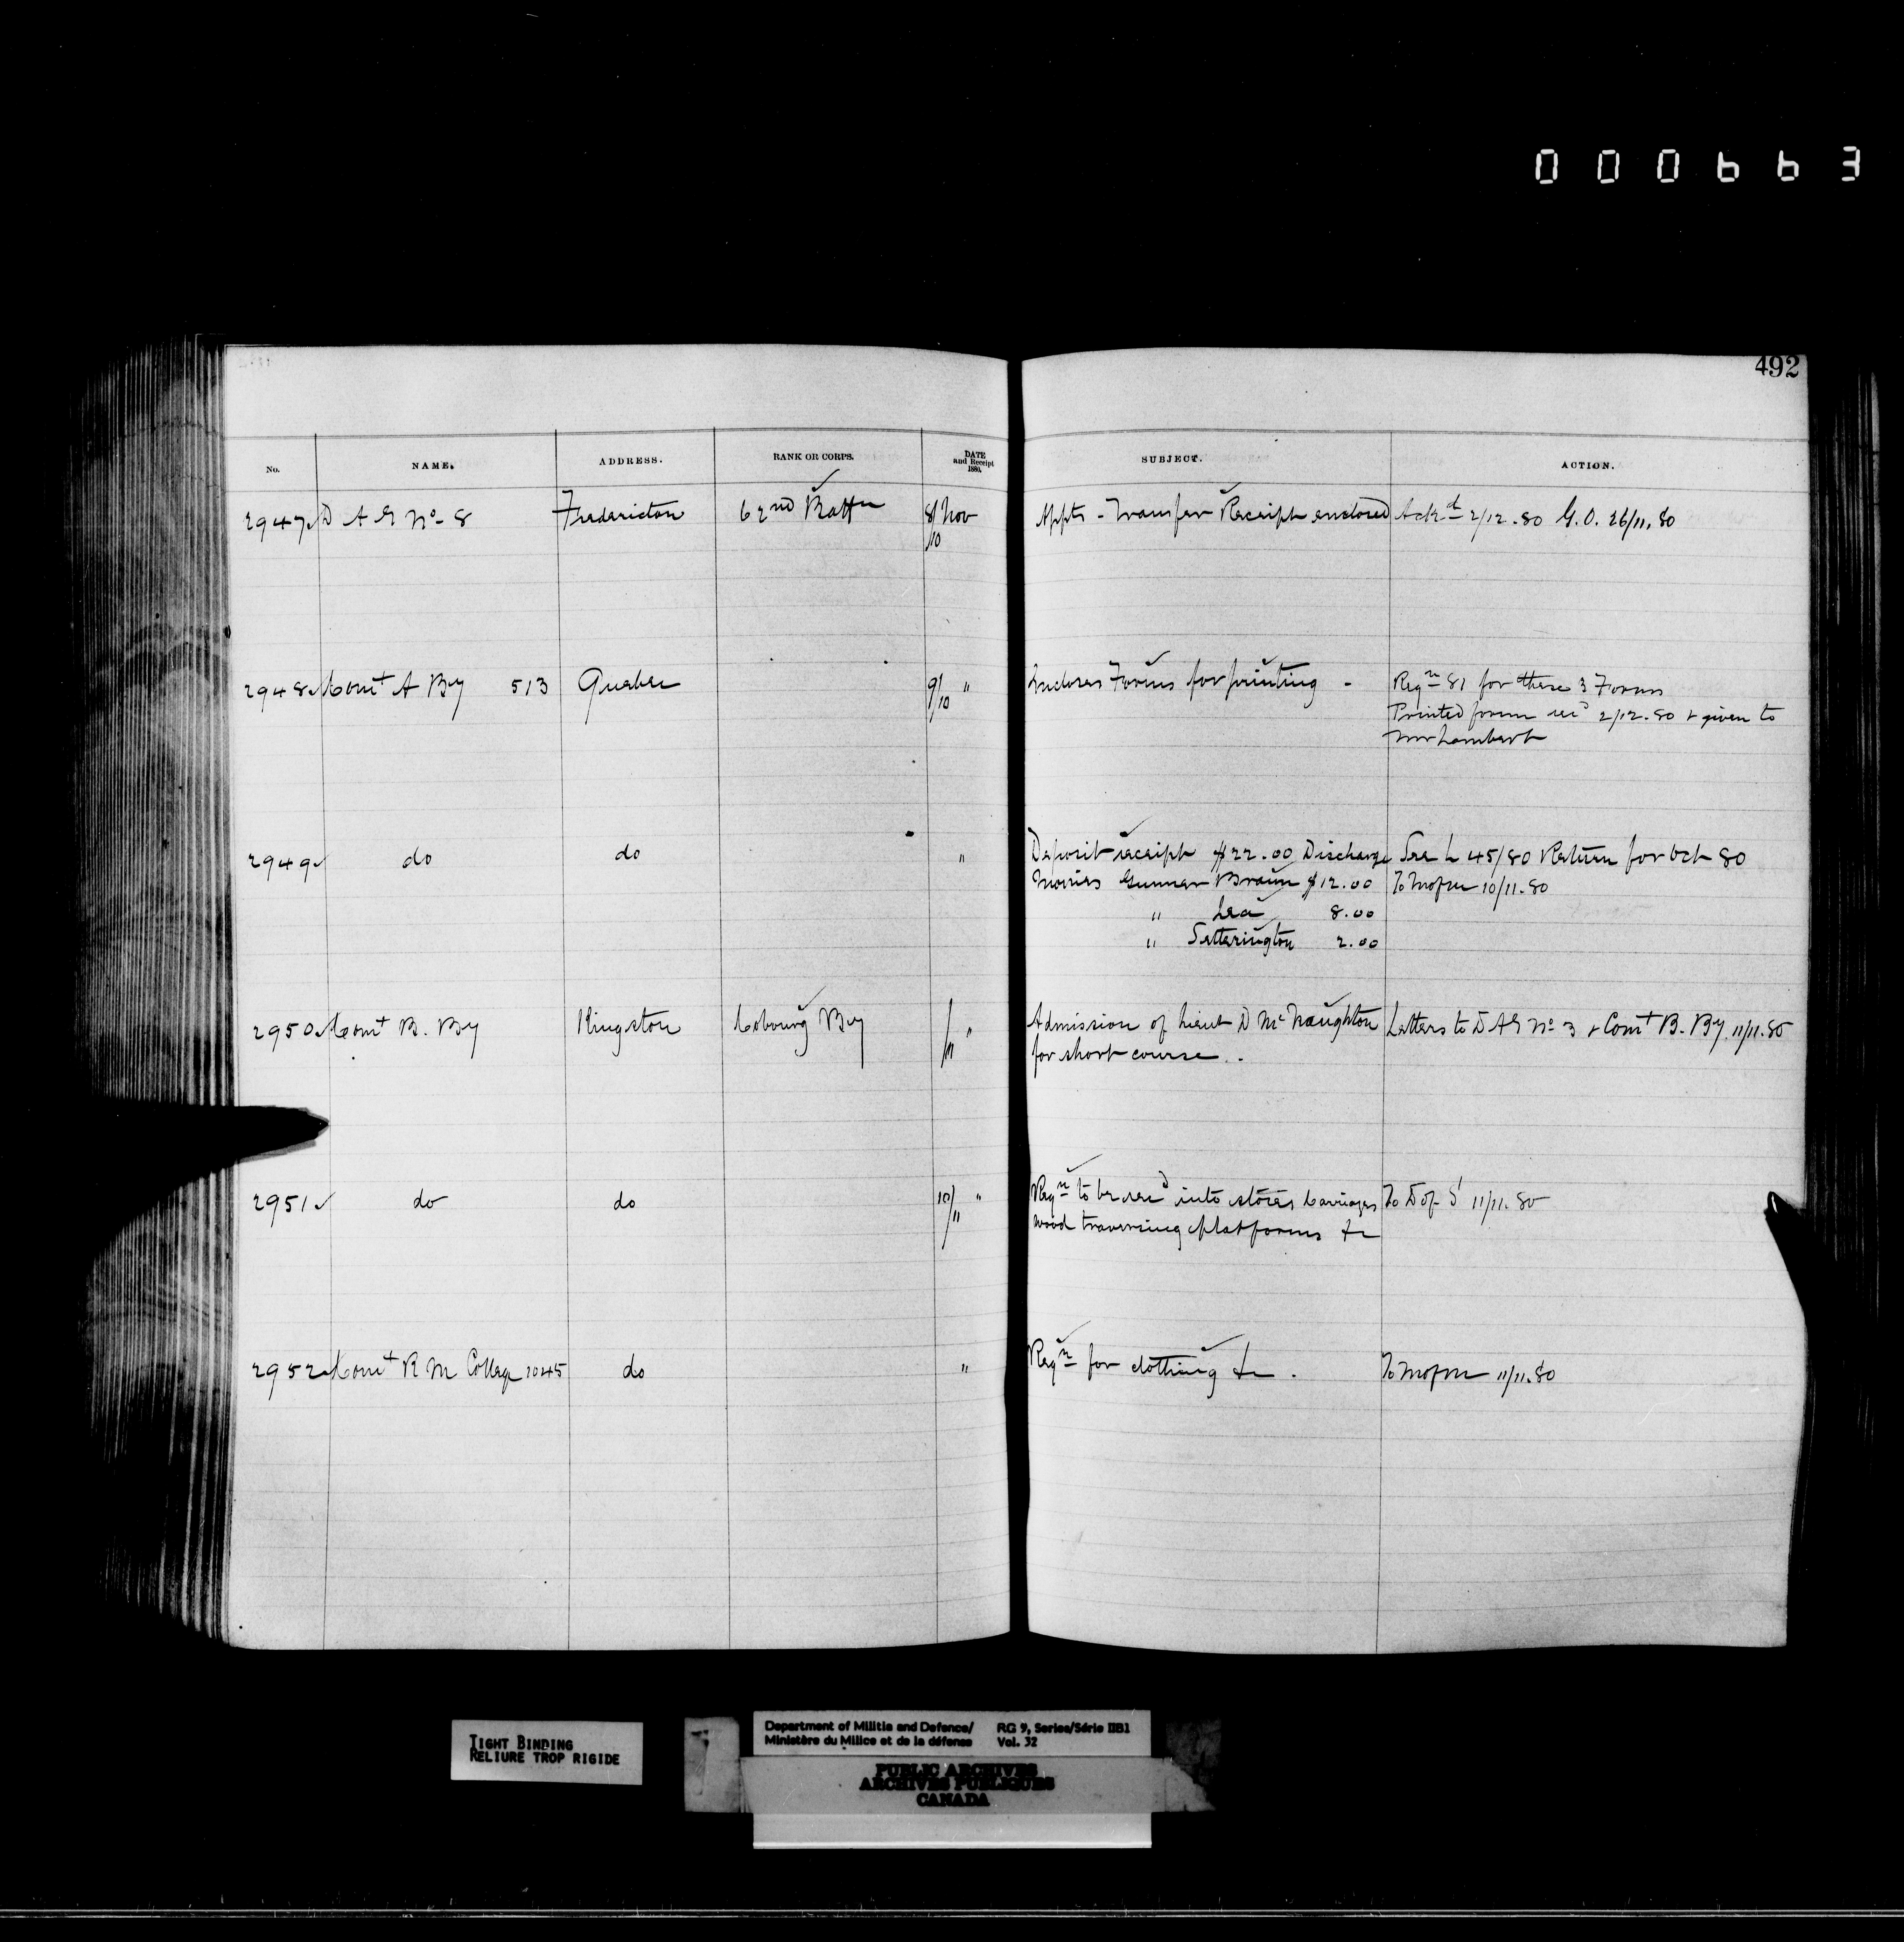 000663
492
No. NAME. ADDRESS. RANK OR CORPS. DATE and Receipt 1880. SUBJECT. ACTION.
2947 ✓ D A G No. 8 Fredericton 62nd Battn 8/10 Nov Appts - Transfer Receipt enclosed Ackd 2/12.80 G.O. 26/11.80
2948 ✓ Comt A By 513 Quebec 9/10 " Incloses Forms for printing - Reqn 81 for these 3 Forms
Printed forms recd 2/12.80 & given to
Mr Lambert
2949 ✓ do do " Deposit receipt $22.00 Discharge See L 45/80 Return for Oct 80
Monies Gunner Braun $12.00 To M of M 10/11.80
" Lea 8.00
" Setterington 2.00
2950 ✓ Comt B. By Kingston Cobourg By /11 " Admission of Lieut D McNaughton Letters to D A G No 3 & Comt B. By 11/11.80
for short course .
2951 ✓ do do 10/11 " Reqn to be recd into stores Carriages To D of S 11/11.80
wood traversing platforms &c
2952 ✓ Comt R M College 1045 do " Reqn for clothing &c . To M of M 11/11.80
TIGHT BINDING
RELIURE TROP RIGIDE
Department of Militia and Defence/ RG 9, Series/Série IIB1
Ministère du Milice et de la défense Vol. 32
PUBLIC ARCHIVES
ARCHIVES PUBLIQUES
CANADA